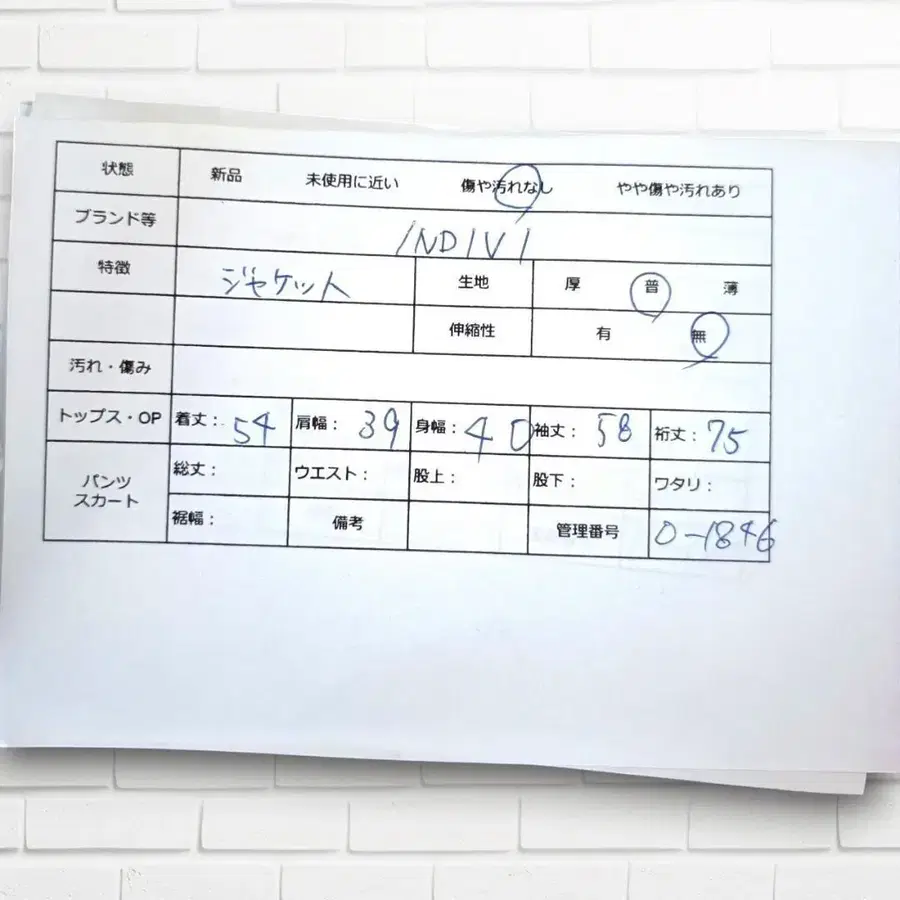 状態 新品 未使用に近い 傷や汚れなし やや傷や汚れあり
ブランド等 INDIVI
特徴 ジャケット 生地 厚 普 薄
伸縮性 有 無
汚れ・傷み
トップス・OP 着丈: 54 肩幅: 39 身幅: 40 袖丈: 58 裄丈: 75
パンツ スカート 総丈: ウエスト: 股上: 股下: ワタリ:
裾幅: 備考 管理番号 0-1846